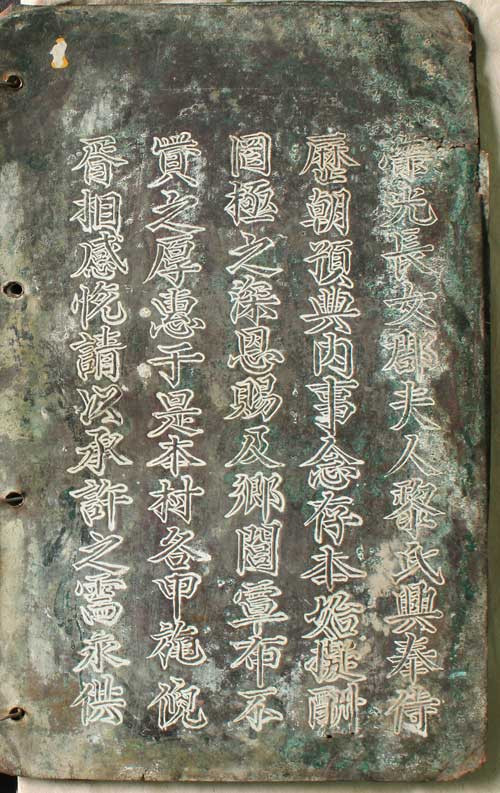 光長女郡夫人黎氏興奉侍
歷朝預典内事念存本始擬酬
罔極之深恩賜及鄉閭覃布不
貲之厚惠于是本村各甲旄倪
胥相感悅請以承許之需永供